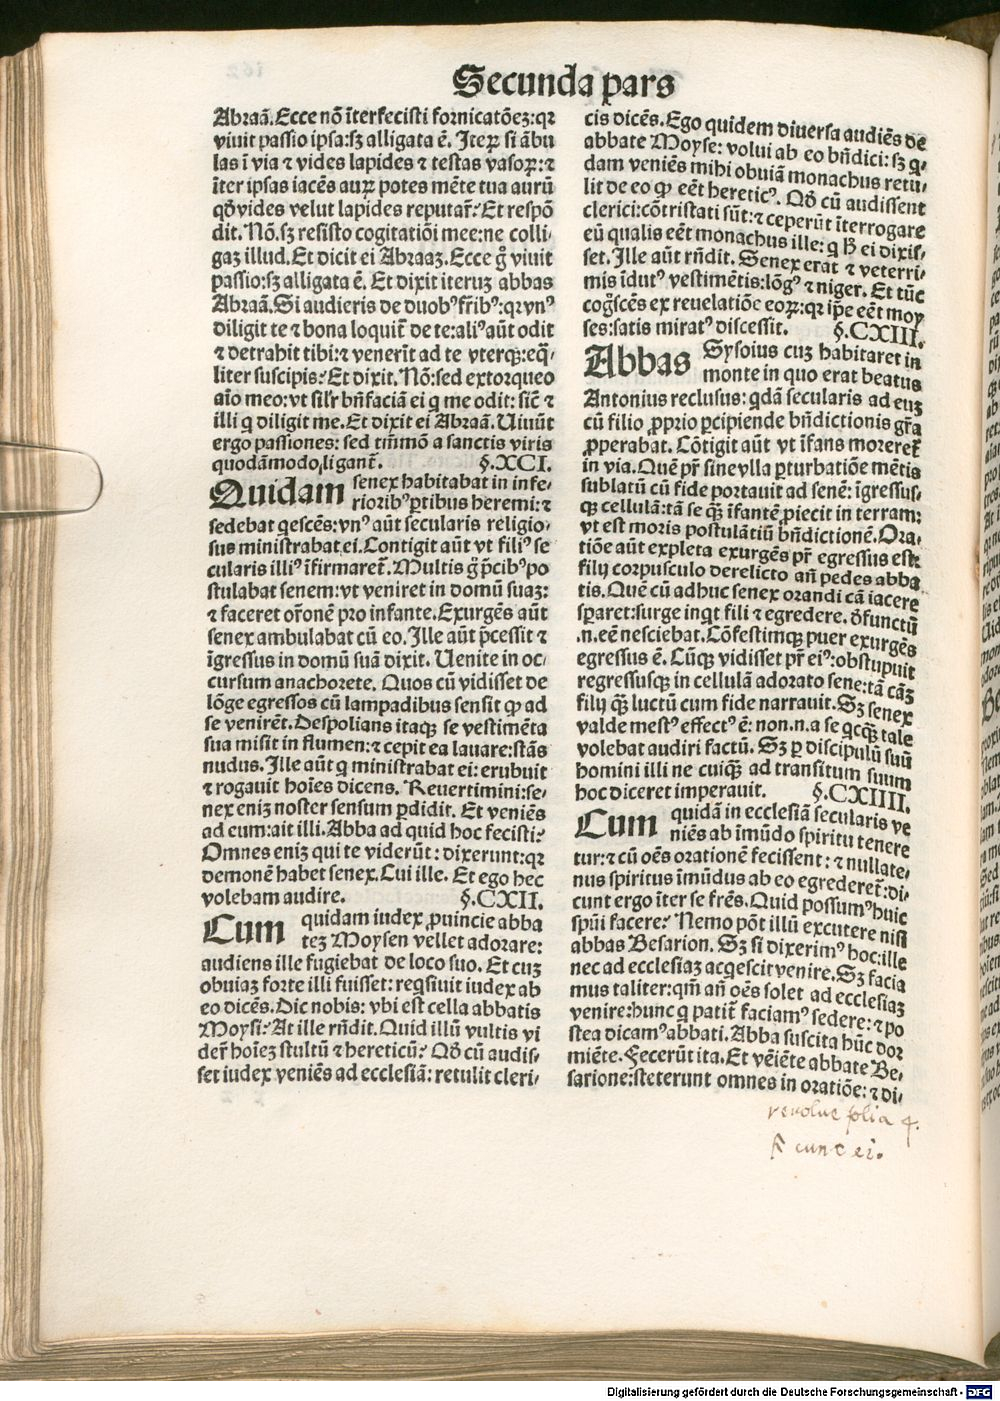 Secunda pars
Abraã. Ecce nõ ĩterfecisti fornicatõeꝫ: qꝛ
viuit passio ipsa: sꝫ alligata ẽ. Iteꝝ si ãbu
las ĩ via ⁊ vides lapides ⁊ testas vasoꝝ: ⁊
ĩter ipsas iacẽs auꝝ potes mẽte tua aurũ
qð vides velut lapides reputar̃? Et respõ
dit. Nõ. sꝫ resisto cogitatiõi mee: ne colli⸗
gaꝫ illud. Et dicit ei Abraaꝫ. Ecce g̃ viuit
passio: sꝫ alligata ẽ. Et dixit iteruꝫ abbas
Abraã. Si audieris de duobꝰ fr̃ibꝰ: qꝛ vnꝰ
diligit te ⁊ bona loquit̃ de te: aliꝰ aũt odit
⁊ detrahit tibi: ⁊ venerĩt ad te vterqꝫ: eq̃⸗
liter suscipis? Et dixit. Nõ: sed extorqueo
aĩo meo: vt sil̃r bñfaciã ei q me odit: sic̃ ⁊
illi q diligit me. Et dixit ei Abraã. Uiuũt
ergo passiones: sed tñmõ a sanctis viris
quodãmodo ligant̃. §. XCI.
Quidam senex habitabat in infe⸗
rioribꝰ ꝑtibus heremi: ⁊
sedebat qescẽs: vnꝰ aũt secularis religio⸗
sus ministrabat ei. Contigit aũt vt filiꝰ se
cularis illiꝰ ĩfirmaret̃. Multis g̃ p̃cibꝰ po
stulabat senem: vt veniret in domũ suaꝫ:
⁊ faceret or̃onẽ pro infante. Exurgẽs aũt
senex ambulabat cũ eo. Ille aũt p̃cessit ⁊
ĩgressus in domũ suã dixit. Uenite in oc⸗
cursum anachorete. Quos cũ vidisset de
lõge egressos cũ lampadibus sensit ꝙ ad
se venirẽt. Despolians itaqꝫ se vestimẽta
sua misit in flumen: ⁊ cepit ea lauare: stãs
nudus. Ille aũt q ministrabat ei: erubuit
⁊ rogauit hoĩes dicens. Reuertimini: se⸗
nex eniꝫ noster sensum ꝑdidit. Et veniẽs
ad eum: ait illi. Abba ad quid hoc fecisti?
Omnes eniꝫ qui te viderũt: dixerunt: qꝛ
demonẽ habet senex. Cui ille. Et ego hec
volebam audire. §. CXII.
Cum quidam iudex ꝓuincie abba
teꝫ Moysen vellet adorare:
audiens ille fugiebat de loco suo. Et cuꝫ
obuiaꝫ forte illi fuisset: reqsiuit iudex ab
eo dicẽs. Dic nobis: vbi est cella abbatis
Moysi? At ille rñdit. Quid illũ vultis vi
der̃ hoĩeꝫ stultũ ⁊ hereticũ? Qð cũ audis⸗
set iudex veniẽs ad ecclesiã: retulit cleri⸗
cis dicẽs. Ego quidem diuersa audiẽs de
abbate Moyse: volui ab eo bñdici: sꝫ q⸗
dam veniẽs mihi obuiã monachus retu⸗
lit de eo ꝙ eẽt hereticꝰ. Qð cũ audissent
clerici: cõtristati sũt: ⁊ ceperũt ĩterrogare
eũ qualis eẽt monachus ille: q ħ ei dixis⸗
set. Ille aũt rñdit. Senex erat ⁊ veterri⸗
mis ĩdutꝰ vestimẽtis: lõgꝰ ⁊ niger. Et tũc
cog̃scẽs ex reuelatiõe eoꝝ: qꝛ ip̃e eẽt moy
ses: satis miratꝰ discessit. §. CXIII.
Abbas Sysoius cuꝫ habitaret in
monte in quo erat beatus
Antonius reclusus: qdã secularis ad euꝫ
cũ filio ꝓprio ꝑcipiende bñdictionis gr̃a
ꝓperabat. Cõtigit aũt vt ĩfans moreret̃
in via. Quẽ pr̃ sine vlla ꝑturbatiõe mẽtis
sublatũ cũ fide portauit ad senẽ: ĩgressus⸗
qꝫ cellulã: tã se qꝫ ĩfantẽ ꝓiecit in terram:
vt est moris postulãtiũ bñdictionẽ. Ora⸗
tiõe aũt expleta exurgẽs pr̃ egressus est:
filij corpusculo derelicto añ pedes abba
tis. Quẽ cũ adhuc senex orandi cã iacere
sꝑaret: surge inqt fili ⁊ egredere. ðfunctũ
.n. eẽ nesciebat. Cõfestimqꝫ puer exurgẽs
egressus ẽ. Cũqꝫ vidisset pr̃ eiꝰ: obstupuit
regressusqꝫ in cellulã adorato sene: tã cãꝫ
filij qꝫ luctũ cum fide narrauit. Sꝫ senex
valde mestꝰ effectꝰ ẽ: non .n. a se qcqꝫ tale
volebat audiri factũ. Sꝫ ꝑ discipulũ suũ
homini illi ne cuiqꝫ ad transitum suum
hoc diceret imperauit. §. CXIIII.
Cum quidã in ecclesiã secularis ve
niẽs ab ĩmũdo spiritu tenere
tur: ⁊ cũ oẽs orationẽ fecissent: ⁊ nullate⸗
nus spiritus ĩmũdus ab eo egrederet̃: di⸗
cunt ergo ĩter se fr̃es. Quid possumꝰ huic
spũi facere? Nemo põt illũ excutere nisi
abbas Besarion. Sꝫ si dixerimꝰ hoc: ille
nec ad ecclesiaꝫ acqescit venire. Sꝫ facia
mus taliter: qm̃ añ oẽs solet ad ecclesiaꝫ
venire: hunc q patit̃ faciamꝰ sedere: ⁊ po
stea dicamꝰ abbati. Abba suscita hũc dor
miẽte. Fecerũt ita. Et vẽiẽte abbate Be⸗
sarione: steterunt omnes in oratiõe: ⁊ di⸗
revolue folia 4.
cunt ei.
Digitalisierung gefördert durch die Deutsche Forschungsgemeinschaft - DFG